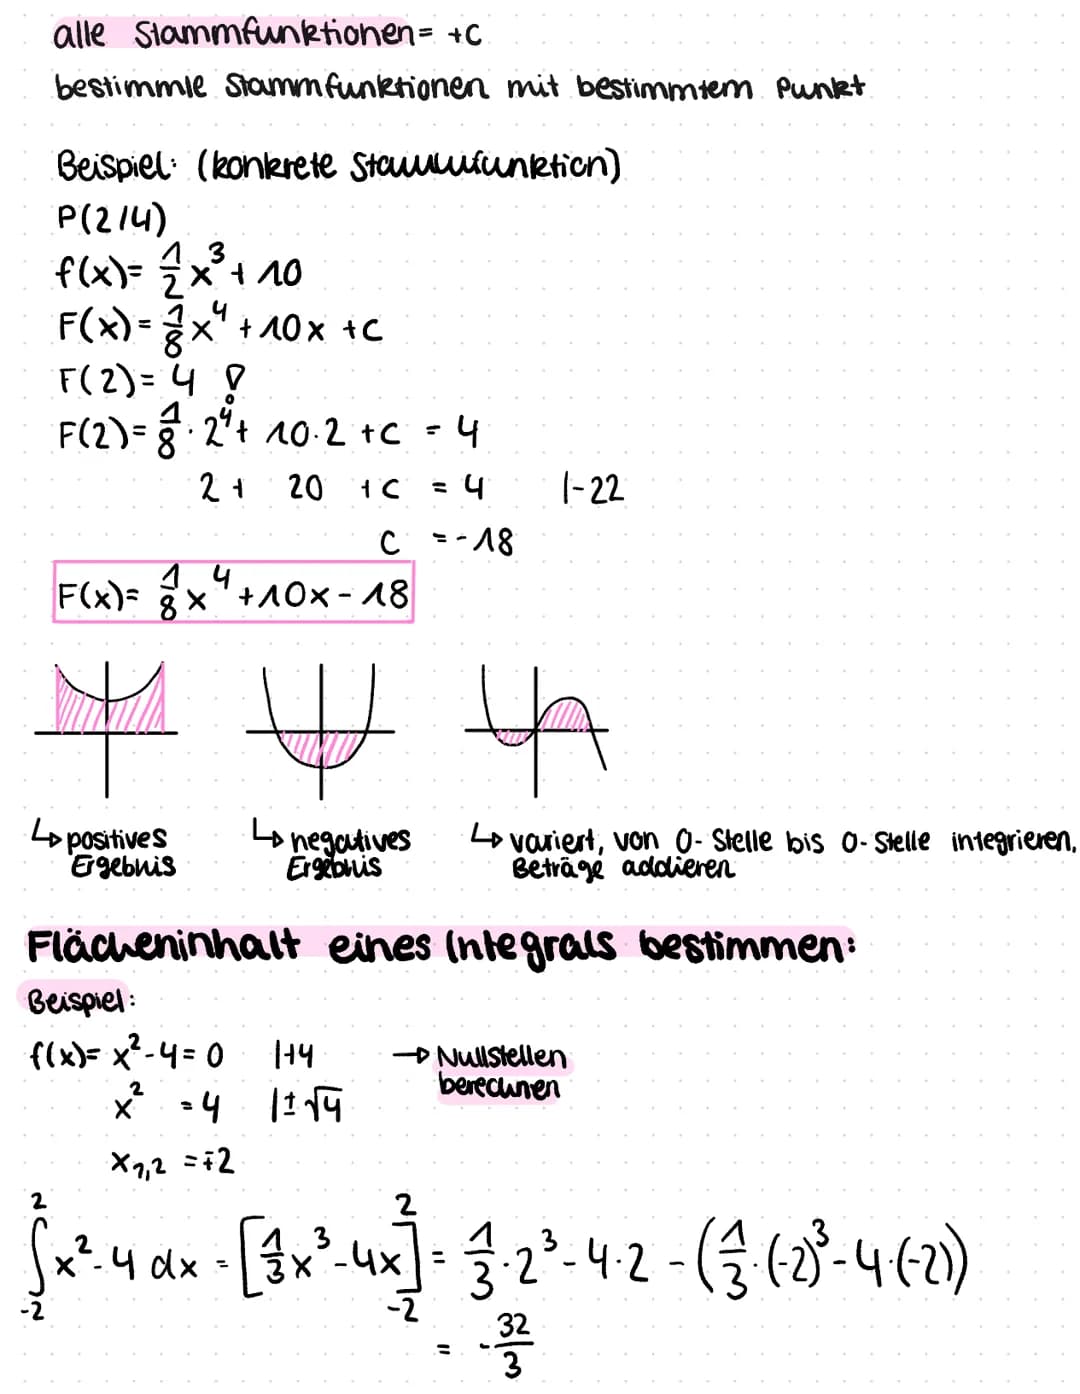 alle Stammfunktionen = +C
bestimmte Stammfunktionen mit bestimmtem Punkt
Beispiel: (konkrete Stammfunktion)
P(2/4)
f(x)= 1/2 x³ + 10
F(x)= 1/8 x⁴ + 10x + C
F(2)= 4 !
F(2)= 1/8 · 2⁴ + 10·2 + C = 4
2 + 20 + C = 4 |-22
C = -18
F(x)= 1/8 x⁴ + 10x - 18
↳ positives Ergebnis
↳ negatives Ergebnis
↳ variiert, von 0-Stelle bis 0-Stelle integrieren, Beträge addieren
Flächeninhalt eines Integrals bestimmen:
Beispiel:
f(x)= x² - 4 = 0 |+4 → Nullstellen berechnen
x² = 4 |±√4
x₁,₂ = ∓2
∫₋₂² x² - 4 dx = [1/3 x³ - 4x]₋₂² = 1/3 · 2³ - 4·2 - (1/3 · (-2)³ - 4·(-2))
= -32/3